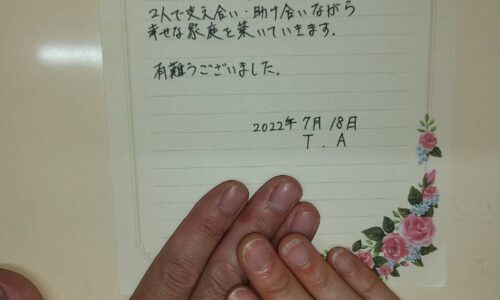 2人で支え合い・助け合いながら
幸せな家庭を築いていきます.
有難うございました.
2022年 7月 18日
T . A